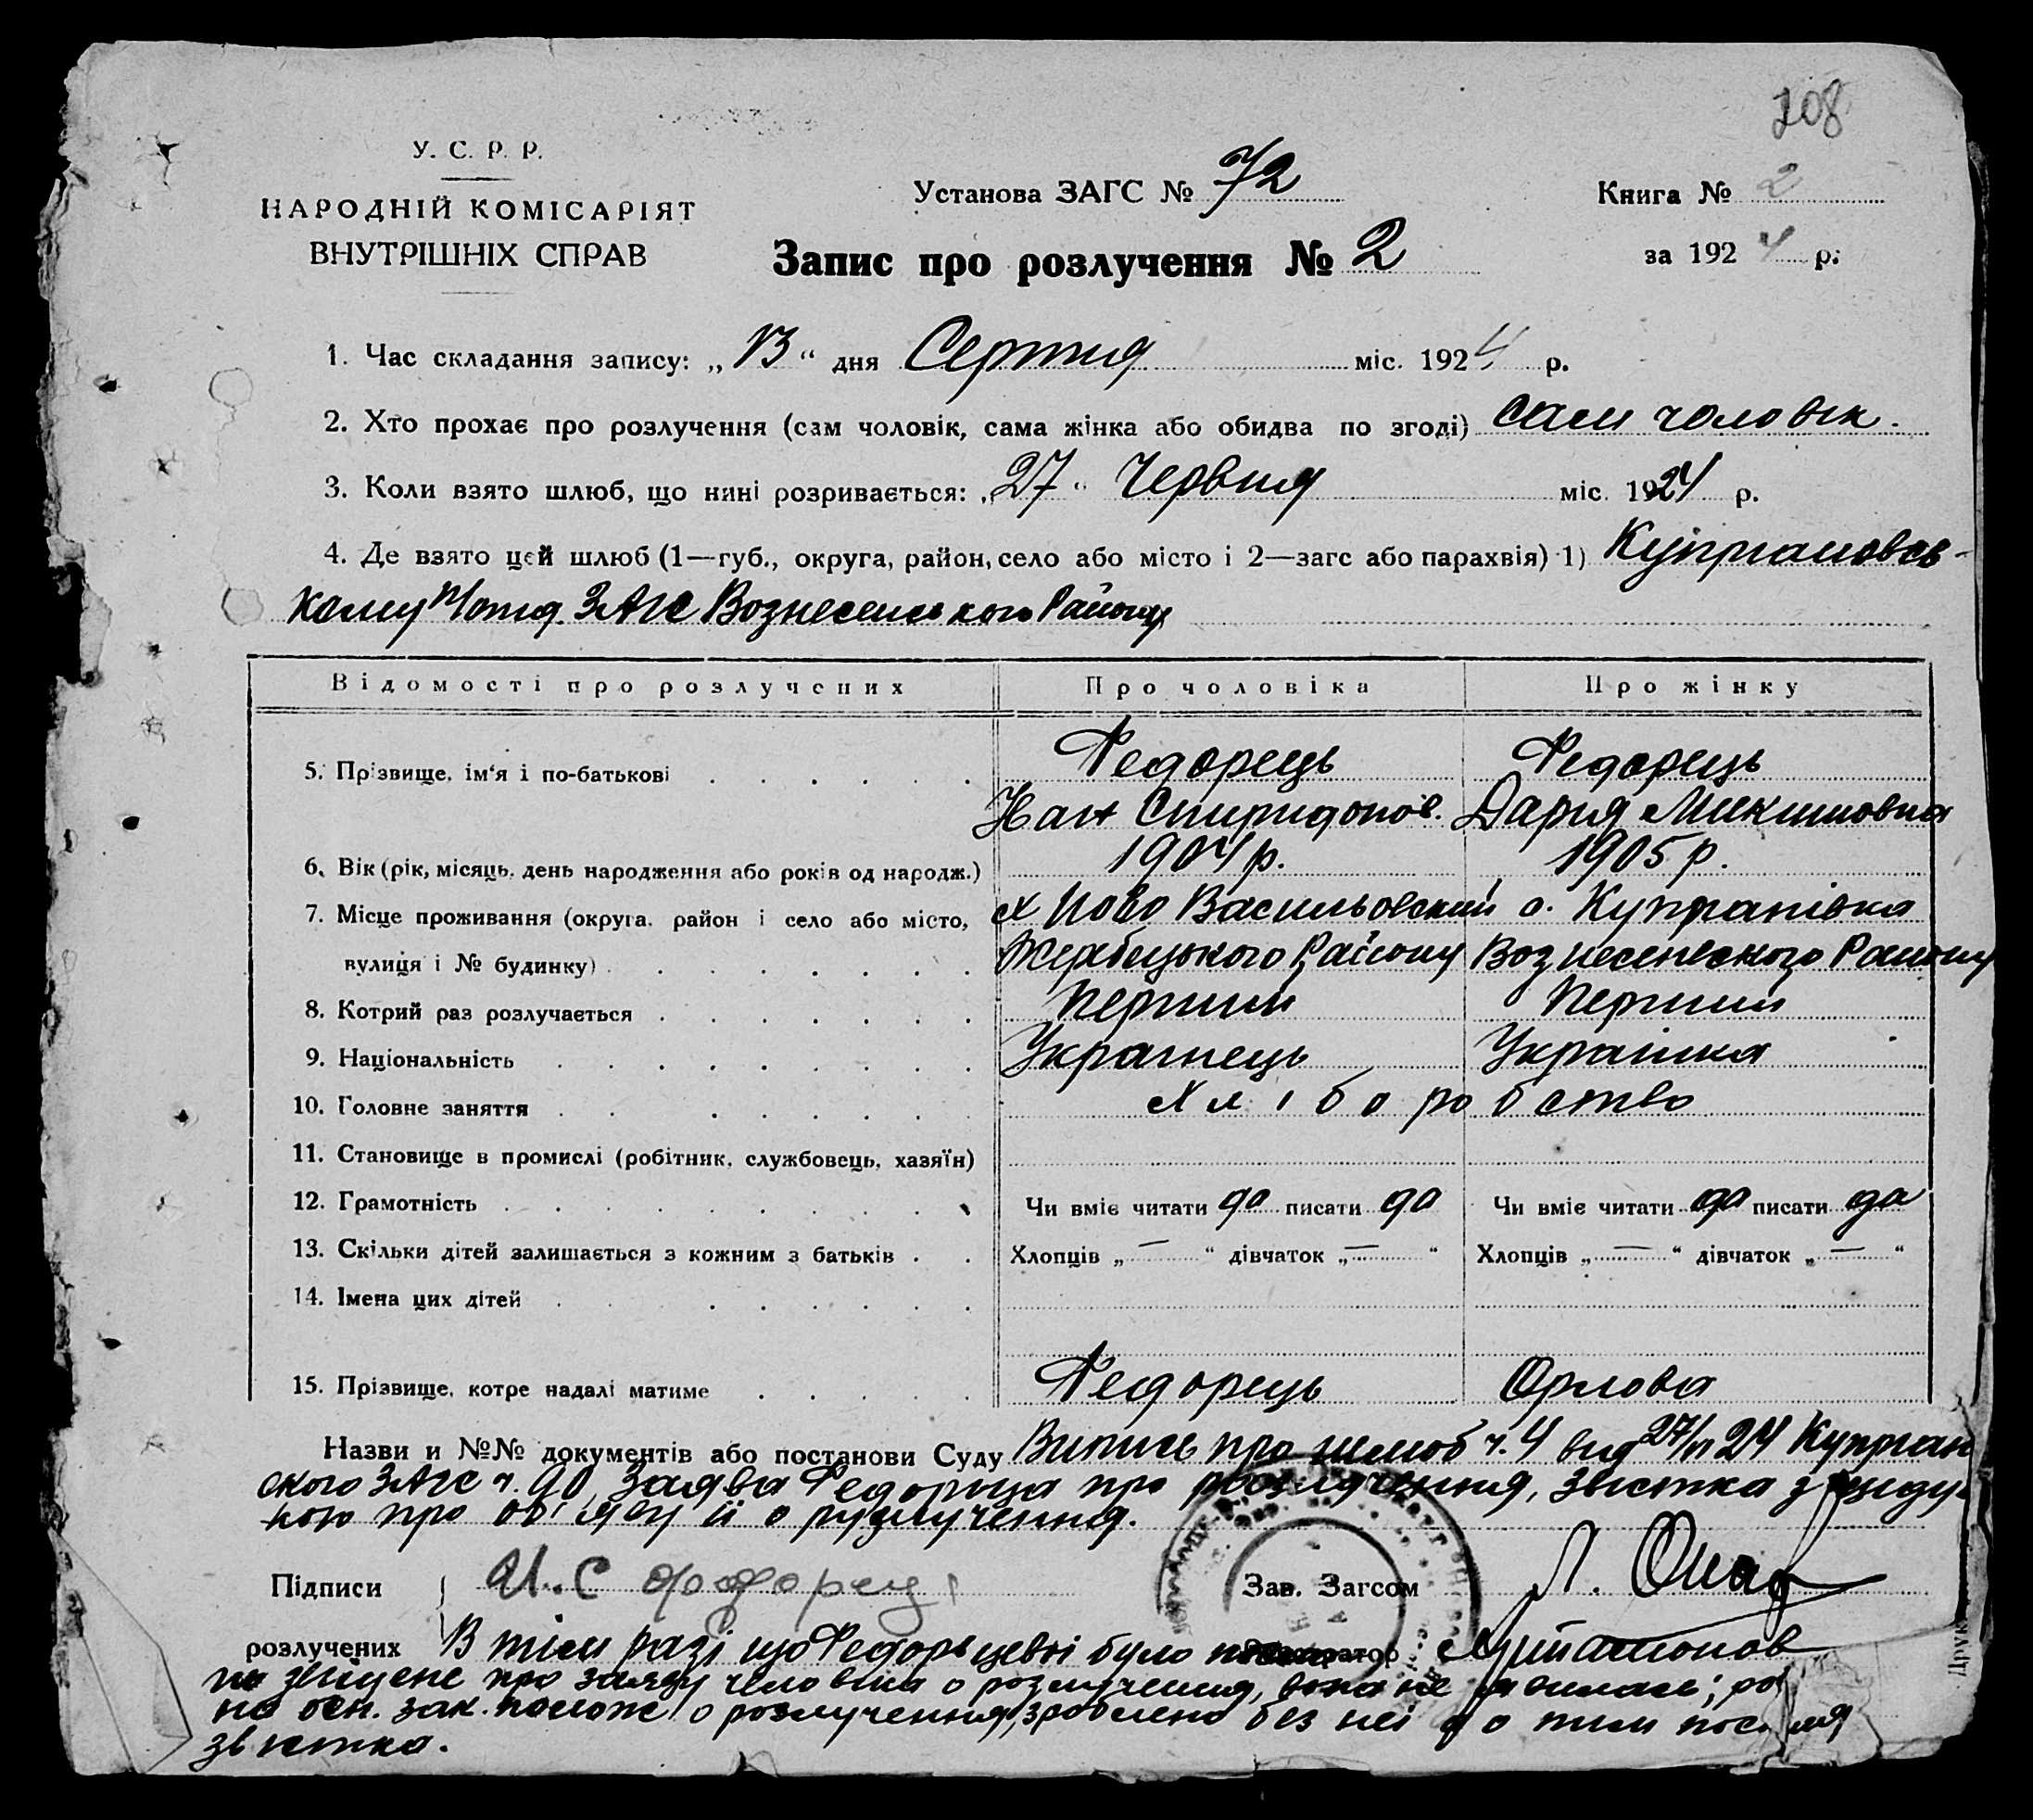 208
У. С. Р. Р.
НАРОДНІЙ КОМІСАРІЯТ
ВНУТРІШНІХ СПРАВ
Установа ЗАГС № 72
Книга № 2
Запис про розлучення № 2
за 1924 р.
1. Час складання запису: „13“ дня Серпня міс. 1924 р.
2. Хто прохає про розлучення (сам чоловік, сама жінка або обидва по згоді) сам чоловік.
3. Коли взято шлюб, що нині розривається: „27“ Червня міс. 1924 р.
4. Де взято цей шлюб (1—губ., округа, район, село або місто і 2—загс або парахвія) 1) Купріановсь-
кому ЗАГС Вознесенського Району
Відомості про розлучених Про чоловіка Про жінку
5. Прізвище, ім'я і по-батькові Федорець Федорець
Іван Спиридонов. Дарія Микитовна
6. Вік (рік, місяць, день народження або років од народж.) 1904 р. 1905 р.
7. Місце проживання (округа, район і село або місто, х Ново Васильовский с. Купріанівка
вулиця і № будинку) Жеребецького Району Вознесенського Району
8. Котрий раз розлучається Перший Перший
9. Національність Українець Українка
10. Головне заняття Хліборобство
11. Становище в промислі (робітник, службовець, хазяїн)
12. Грамотність Чи вміє читати да писати да Чи вміє читати да писати да
13. Скільки дітей залишається з кожним з батьків Хлопців „—“ дівчаток „—“ Хлопців „—“ дівчаток „—“
14. Імена цих дітей
15. Прізвище, котре надалі матиме Федорець Орлова
Назви и №№ документів або постанови Суду Випись про шлюб ч. 4 від 27/VI 24 Купріан
ского ЗАГС ч. 90, Заява Федорца про розлучення, звістка з
про об'яву її о розлучення.
Підписи И. С Федорец Зав. Загсом Л.
розлучених В тім разі що Федорьцевої було Реєстратор
про заяву чоловіка о розлучення, вона не явилась;
на осн. зак. полож о розлучення, зроблено без неї о тим
звістка.